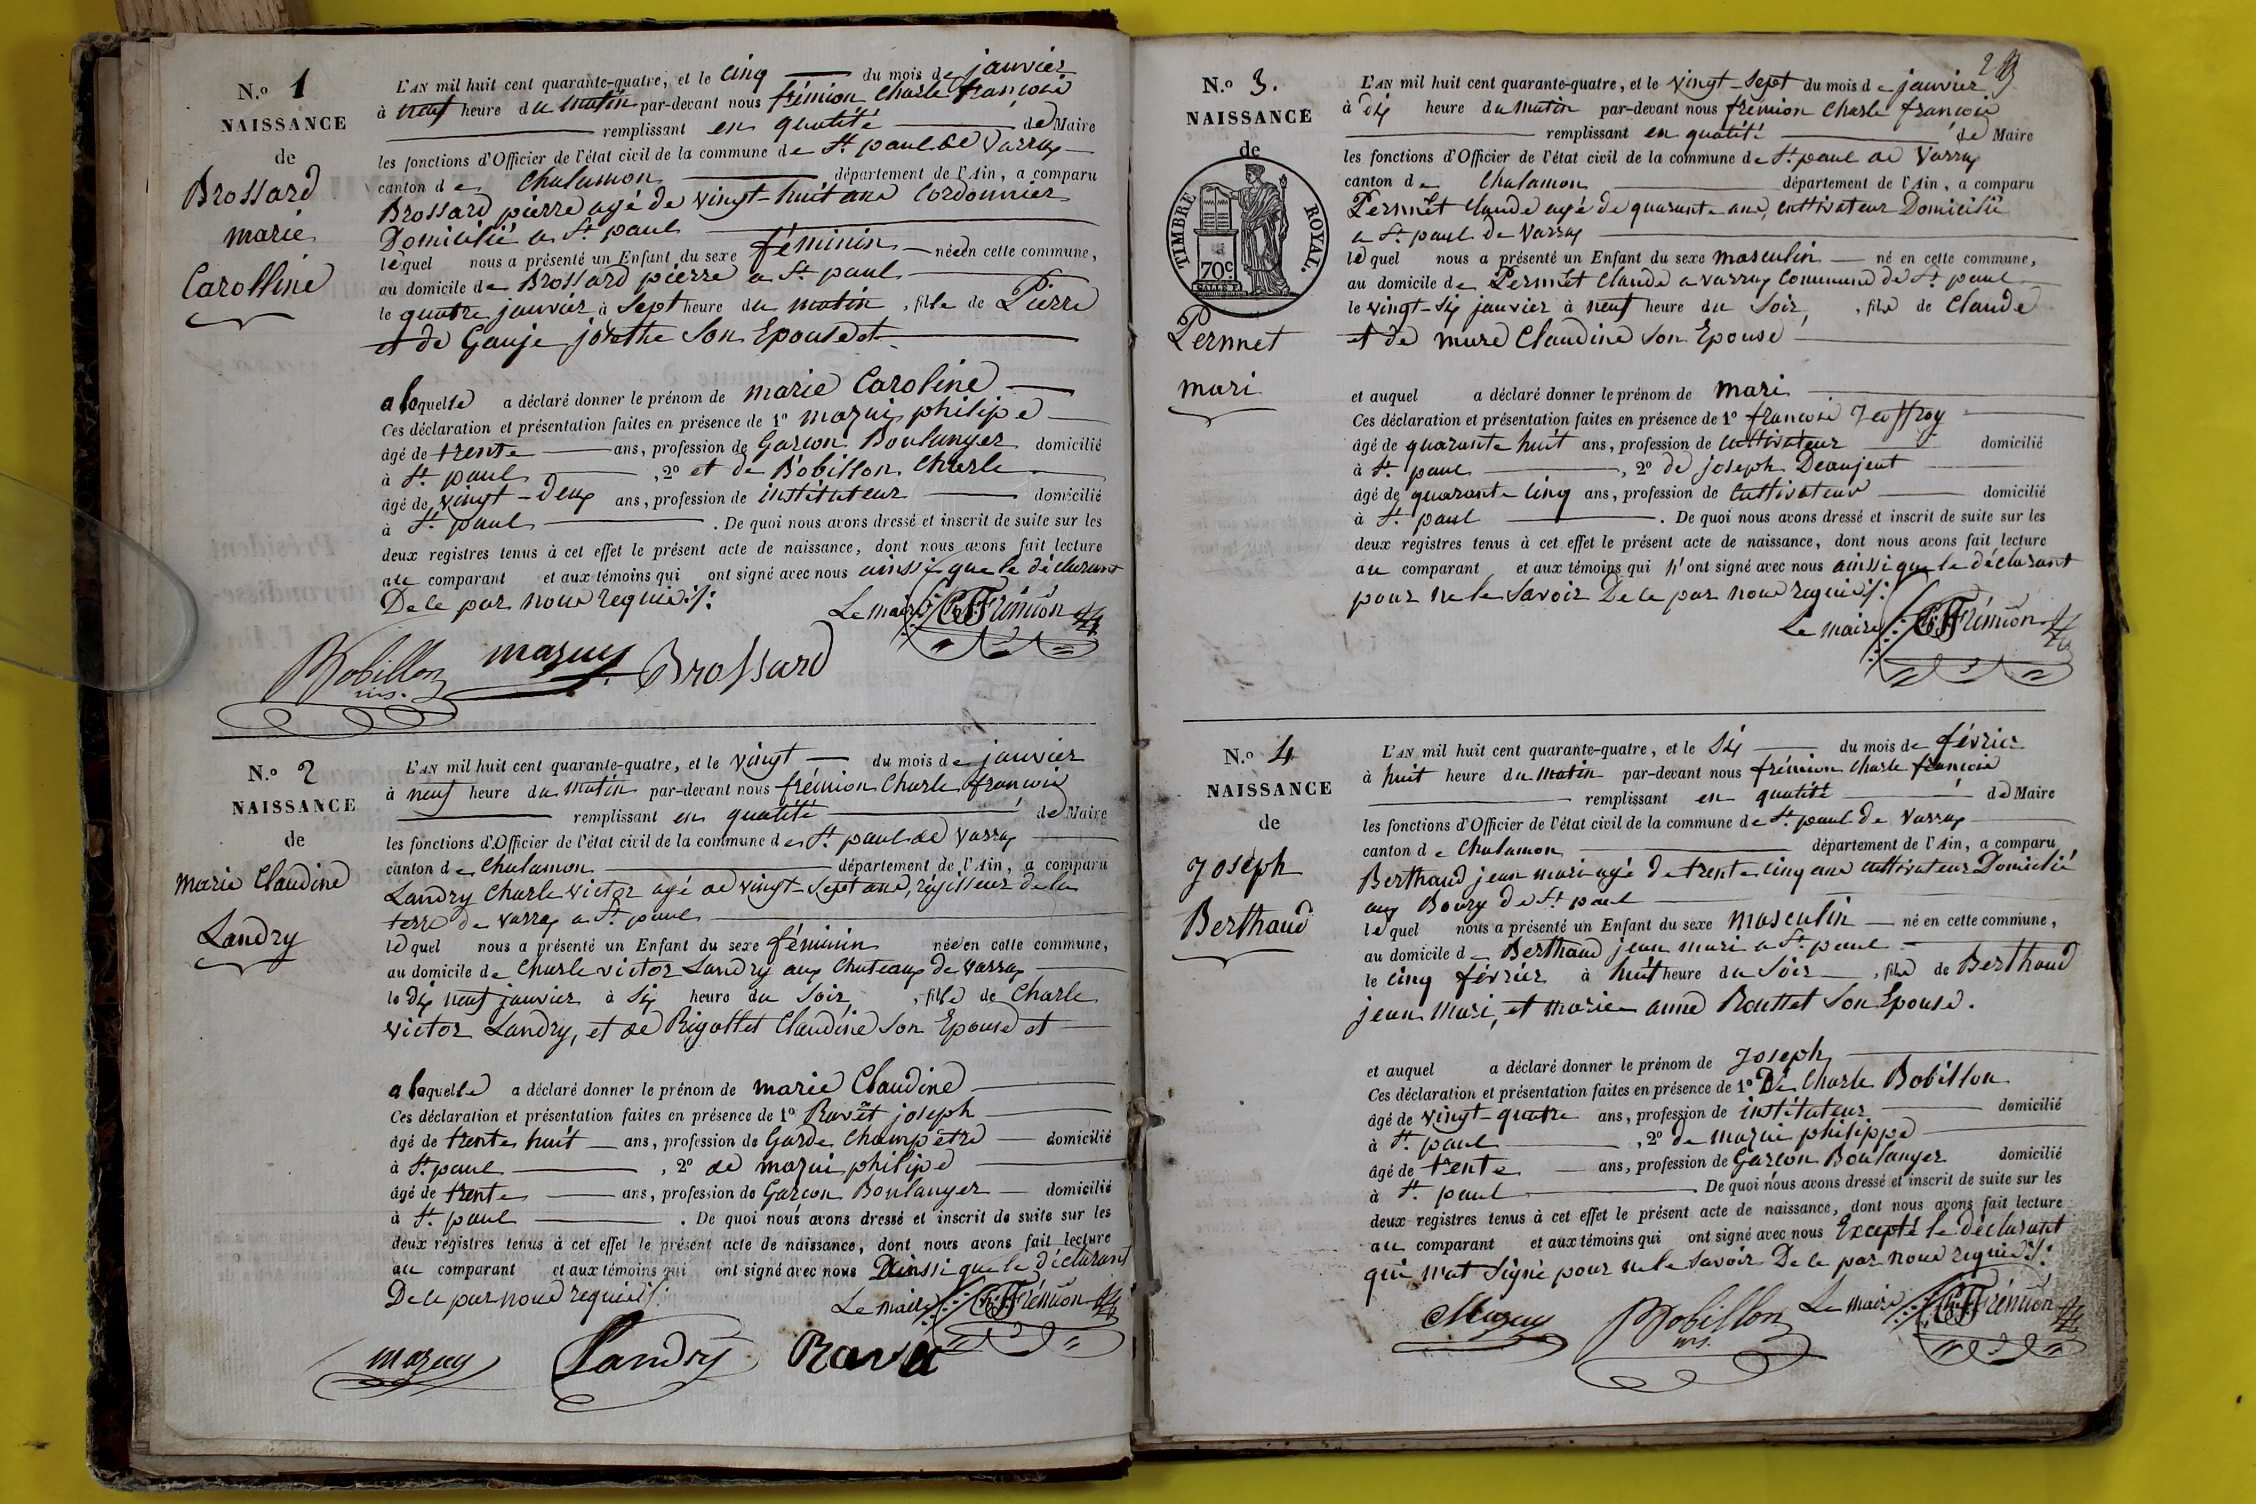 N.o 1
NAISSANCE
de
Brossard
marie
Carolline
L'AN mil huit cent quarante-quatre, et le cinq du mois de janvier
à neuf heure du matin par-devant nous frémion Charle françois
remplissant en qualité de Maire
les fonctions d'Officier de l'état civil de la commune de St paul de Varray
canton de Chalamon département de l'Ain, a comparu
Brossard pierre agé de vingt-huit ans Cordonnier
Domicilié a St paul
lequel nous a présenté un Enfant du sexe féminin née en cette commune,
au domicile de Brossard pierre a St paul
le quatre janvier à sept heure du matin, fille de Pierre
et de Ganje josethe Son Epouse et
a laquelle a déclaré donner le prénom de marie Caroline
Ces déclaration et présentation faites en présence de 1o mazui philipe
âgé de trente ans, profession de Garcon Boulanger domicilié
à St paul, 2o et de Bobillon Charle
âgé de vingt-deux ans, profession de instituteur domicilié
à St paul. De quoi nous avons dressé et inscrit de suite sur les
deux registres tenus à cet effet le présent acte de naissance, dont nous avons fait lecture
au comparant et aux témoins qui ont signé avec nous ainsi que le déclarant
De ce par nous requis ./.
Le maire Ch F Frémion
Bobillon ins. mazuy Brossard
N.o 2
NAISSANCE
de
Marie Claudine
Landry
L'AN mil huit cent quarante-quatre, et le vingt du mois de janvier
à neuf heure du matin par-devant nous frémion Charle françois
remplissant en qualité de Maire
les fonctions d'Officier de l'état civil de la commune de St paul de Varray
canton de Chalamon département de l'Ain, a comparu
Landry Charle victor agé de vingt-sept ans, régisseur de la
terre de varray a St paul
lequel nous a présenté un Enfant du sexe féminin née en cette commune,
au domicile de Charle victor Landry aux Chateaux de varray
le dix neuf janvier à six heure du Soir, fille de Charle
victor Landry, et de Rigottet Claudine Son Epouse et
a laquelle a déclaré donner le prénom de marie Claudine
Ces déclaration et présentation faites en présence de 1o Ravet joseph
âgé de trente huit ans, profession de Garde Champêtre domicilié
à St paul, 2o de mazui philipe
âgé de trente ans, profession de Garcon Boulanger domicilié
à St paul. De quoi nous avons dressé et inscrit de suite sur les
deux registres tenus à cet effet le présent acte de naissance, dont nous avons fait lecture
au comparant et aux témoins qui ont signé avec nous Ainsi que le déclarant
De ce par nous requis ./.
Le maire Ch F Frémion
mazuy Landry Ravet
2
N.o 3.
NAISSANCE
de
TIMBRE ROYAL.
70c
Permet
mari
L'AN mil huit cent quarante-quatre, et le vingt-sept du mois de janvier
à dix heure du matin par-devant nous frémion Charle françois
remplissant en qualité de Maire
les fonctions d'Officier de l'état civil de la commune de St paul de Varray
canton de Chalamon département de l'Ain, a comparu
Permet Claude agé de quarante ans, Cultivateur Domicilié
a St paul de Varray
lequel nous a présenté un Enfant du sexe masculin né en cette commune,
au domicile de Permet Claude a varray Commune de St paul
le vingt-six janvier à neuf heure du Soir, fils de Claude
et de mure Claudine Son Epouse
et auquel a déclaré donner le prénom de mari
Ces déclaration et présentation faites en présence de 1o francois Jeoffroy
âgé de quarante huit ans, profession de Cultivateur domicilié
à St paul, 2o de joseph Deaujeut
âgé de quarante cinq ans, profession de Cultivateur domicilié
à St paul. De quoi nous avons dressé et inscrit de suite sur les
deux registres tenus à cet effet le présent acte de naissance, dont nous avons fait lecture
au comparant et aux témoins qui n'ont signé avec nous ainsi que le déclarant
pour ne le Savoir De ce par nous requis ./.
Le maire Ch F Frémion
N.o 4
NAISSANCE
de
Joseph
Berthaud
L'AN mil huit cent quarante-quatre, et le six du mois de février
à huit heure du matin par-devant nous frémion Charle françois
remplissant en qualité de Maire
les fonctions d'Officier de l'état civil de la commune de St paul de Varray
canton de Chalamon département de l'Ain, a comparu
Berthaud jean mari agé de trente cinq ans Cultivateur Domicilié
aux Bourg de St paul
lequel nous a présenté un Enfant du sexe masculin né en cette commune,
au domicile de Berthaud jean mari a St paul
le cinq février à huit heure du Soir, fils de Berthaud
jean Mari, et marie anne Routtet Son Epouse.
et auquel a déclaré donner le prénom de Joseph
Ces déclaration et présentation faites en présence de 1o De Charle Bobillon
âgé de vingt-quatre ans, profession de instituteur domicilié
à St paul, 2o de mazui philippe
âgé de trente ans, profession de Garcon Boulanger domicilié
à St paul De quoi nous avons dressé et inscrit de suite sur les
deux registres tenus à cet effet le présent acte de naissance, dont nous avons fait lecture
au comparant et aux témoins qui ont signé avec nous Excepté le déclarant
qui n'at signé pour ne le savoir De ce par nous requis ./.
Le maire Ch F Frémion
Mazuy Bobillon ins.